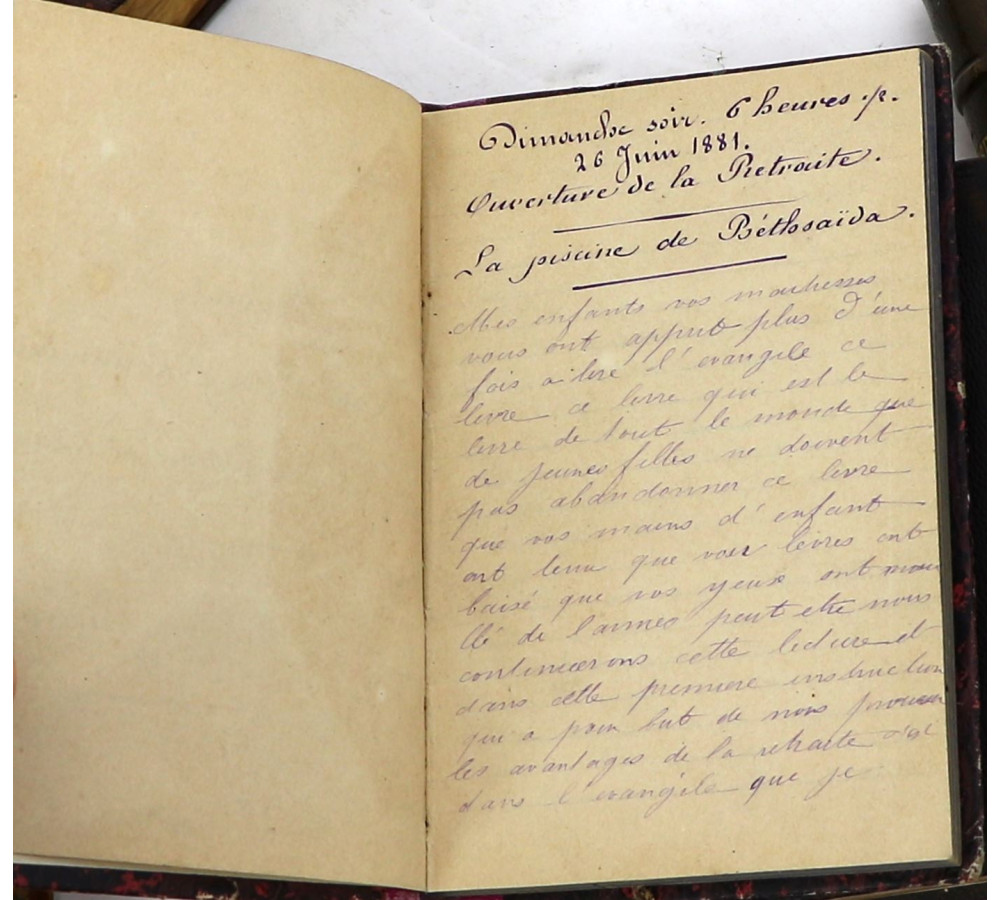 Dimanche soir. 6 heures ./.
26 Juin 1881.
Ouverture de la Retraite.
La piscine de Béthsaïda.
Mes enfants vos maitresses
vous ont appris plus d'une
fois a lire l'evangile ce
livre ce livre qui est le
livre de tout le monde que
de jeunes filles ne doivent
pas abandonner ce livre
que vos mains d'enfant
ont tenu que vos lèvres ont
baisé que vos yeux ont mouil
lé de larmes peut etre nous
continuerons cette lecture et
dans cette premiere instruction
qui a pour but de nous prouver
les avantages de la retraite c'est
dans l'evangile que je